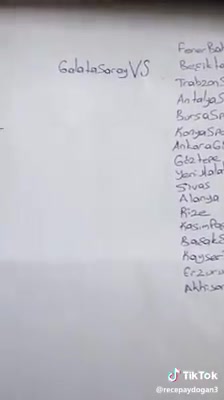 GalataSaray VS
FenerBah
Beşikta
TrabzonS
AntalyaS
BursaSpo
KonyaSpo
AnkaraG
Göztepe
YeniMala
Sivas
Alanya
Rize
KasımPaş
BaşakŞ
Kayseri
Erzuru
Akhisar
TikTok
@recepaydogan3